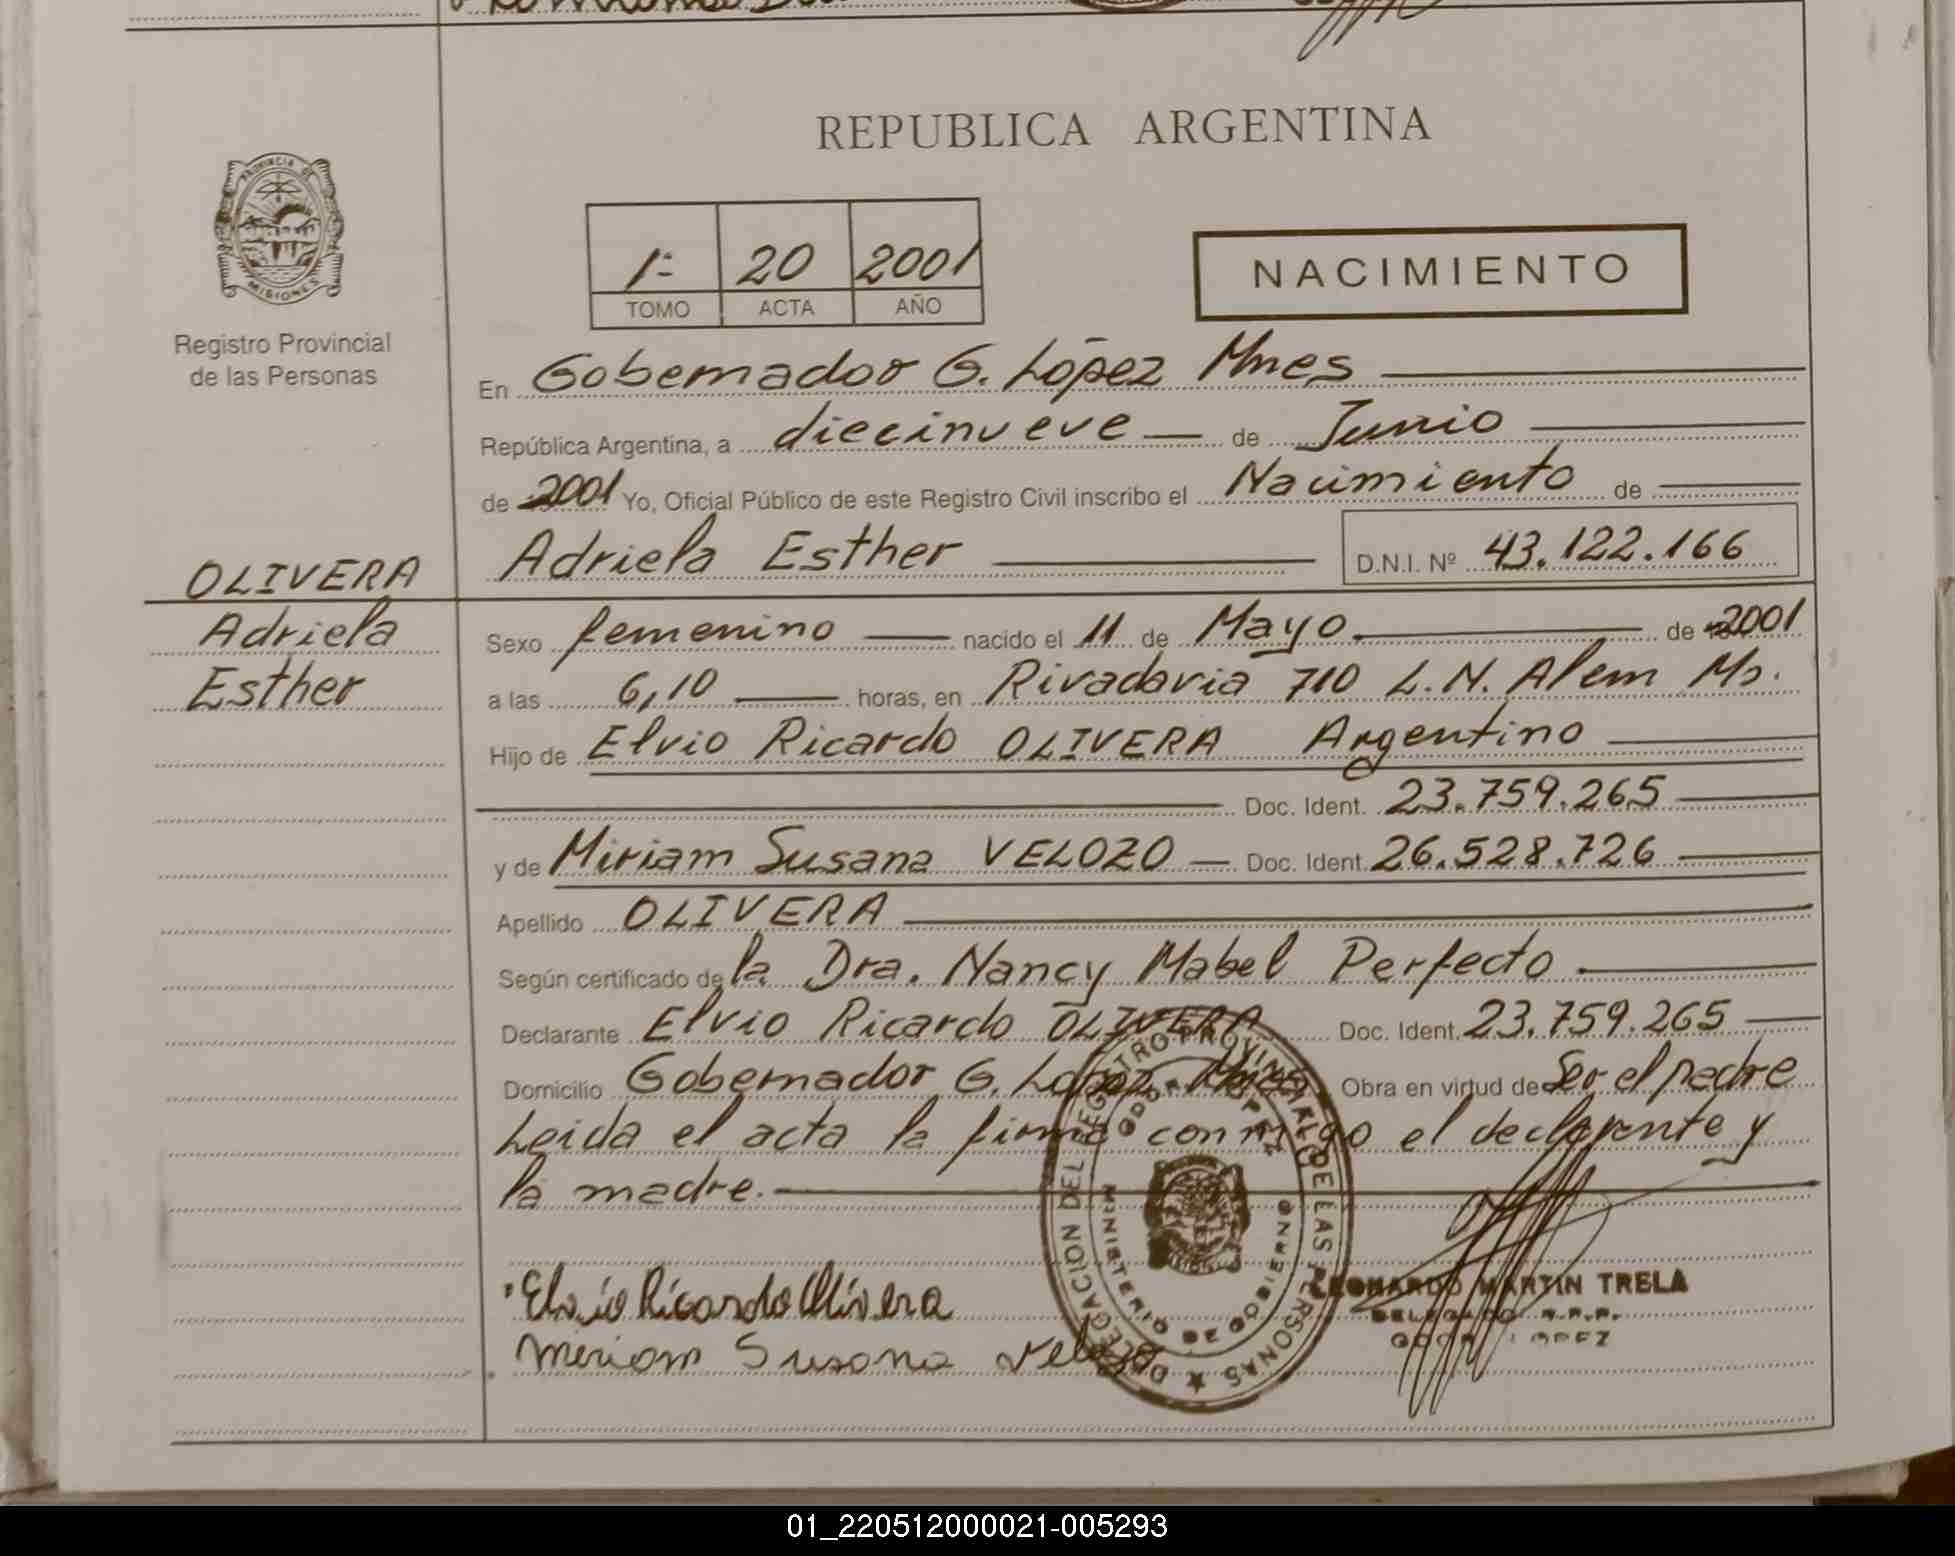 REPUBLICA ARGENTINA
PROVINCIA DE
MISIONES
Registro Provincial
de las Personas
1- 20 2001
TOMO ACTA AÑO
NACIMIENTO
En Gobernador G. López Mnes
República Argentina, a diecinueve de Junio
de 2001 Yo, Oficial Público de este Registro Civil inscribo el Nacimiento de
Adriela Esther D.N.I. Nº 43.122.166
OLIVERA
Adriela
Esther
Sexo femenino nacido el 11 de Mayo de 2001
a las 6,10 horas, en Rivadavia 710 L.N. Alem Ms.
Hijo de Elvio Ricardo OLIVERA Argentino
Doc. Ident. 23.759.265
y de Miriam Susana VELOZO Doc. Ident. 26.528.726
Apellido OLIVERA
Según certificado de la Dra. Nancy Mabel Perfecto
Declarante Elvio Ricardo OLIVERA Doc. Ident. 23.759.265
Domicilio Gobernador G. López Mnes Obra en virtud de Ser el padre
Leida el acta la firma conmigo el declarante y
la madre.
Elvio Ricardo Olivera
Miriam Susana Velozo
DELEGACION DEL REGISTRO PROVINCIAL DE LAS PERSONAS
GDOR. LOPEZ
MINISTERIO DE GOBIERNO
LEONARDO MARTIN TRELA
DELEGADO R.P.P.
GDOR. LOPEZ
01_220512000021-005293